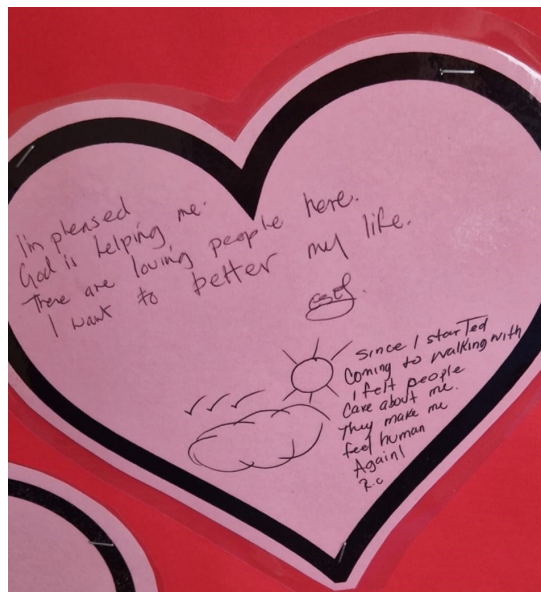 I'm pleased
God is helping me.
There are loving people here.
I want to better my life.
Since I starTed
Coming to walking with
I felt people
Care about me.
They make me
feel human
Again!
R.c